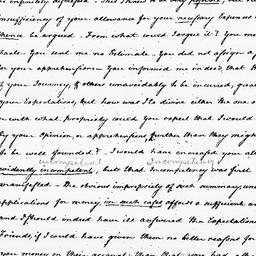 insufficiency of your allowance for your necessary Expences
thence be argued. From what could I argue it? You me
Facts. You sent me no Estimate. You did not assign a
for your apprehension. You informed me indeed, that
of your Journey, & others unavoidably to be incurred, great
your Expectations, but how was I to divine either the one o
or with what propriety could you expect that I would
by your Opinion, or apprehensions further than they might
to be well founded? I would have encreased your all
incompetent Incompetency
evidently incompetent, but that Incompetency was first
manifested. The obvious impropriety of such summary, une
applications for money, in such cases affords a sufficient a
and I should indeed have ill answered the Expectations
Friends, if I could have given them no better reasons for
your money on their account, than that you had